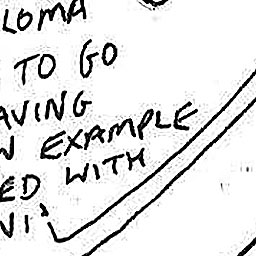 LOMA
TO GO
AVING
N EXAMPLE
ED WITH